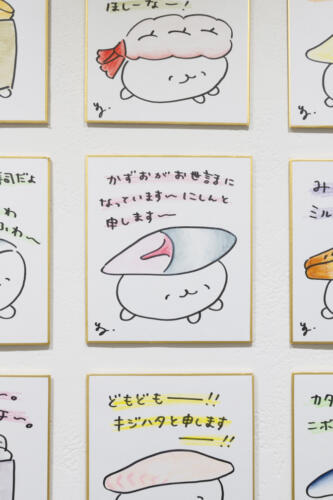 ほしーなー!
司だよ
わ
ふわ〜
かずおがお世話に
なっています〜 にしんと
申します〜
み
ミル
〜。
よ〜。
どもども━━!!
キジハタと申します
━━!!
カタ
ニボ